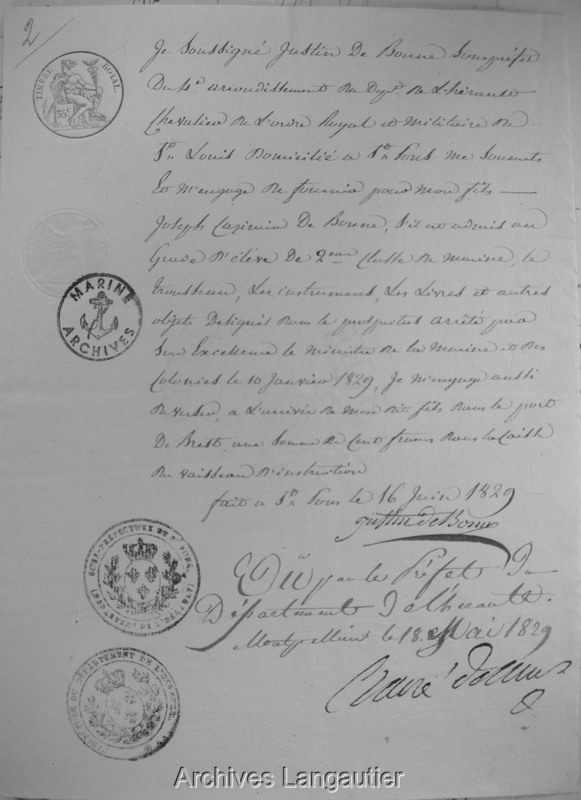 2
TIMBRE ROYAL
35
MARINE
ARCHIVES
Je Soussigné Justin De Bonne Souspréfet
Du 4e arrondissement du Dept. De L'hérault
Chevalier De L'ordre Royal et Militaire De
St. Louis Domicilié a St. Pons me Soumets
Et m'engage De fournir pour mon fils —
Joseph Casimir De Bonne, s'il est admis au
Grade D'élève De 2eme Classe De Marine, le
trousseau, Les instrumens, Les Livres et autres
objets Designés Dans le prospectus arrêté par
Son Excellence le Ministre De la Marine et Des
Colonies le 10 Janvier 1829, Je m'engage aussi
De verser, a L'arrivée De mon dit fils Dans le port
De Brest, une Somme De Cent francs Dans la Caisse
Du vaisseau D'instruction
fait a St. Pons le 16 Juin 1829
Justin de Bonne
Vu par le Préfet Du
Département De l'hérault.
Montpellier le 18 Mai 1829
SOUS-PREFECTURE DE ST PONS
DEPARTEMENT DE L'HERAULT
Archives Langautier